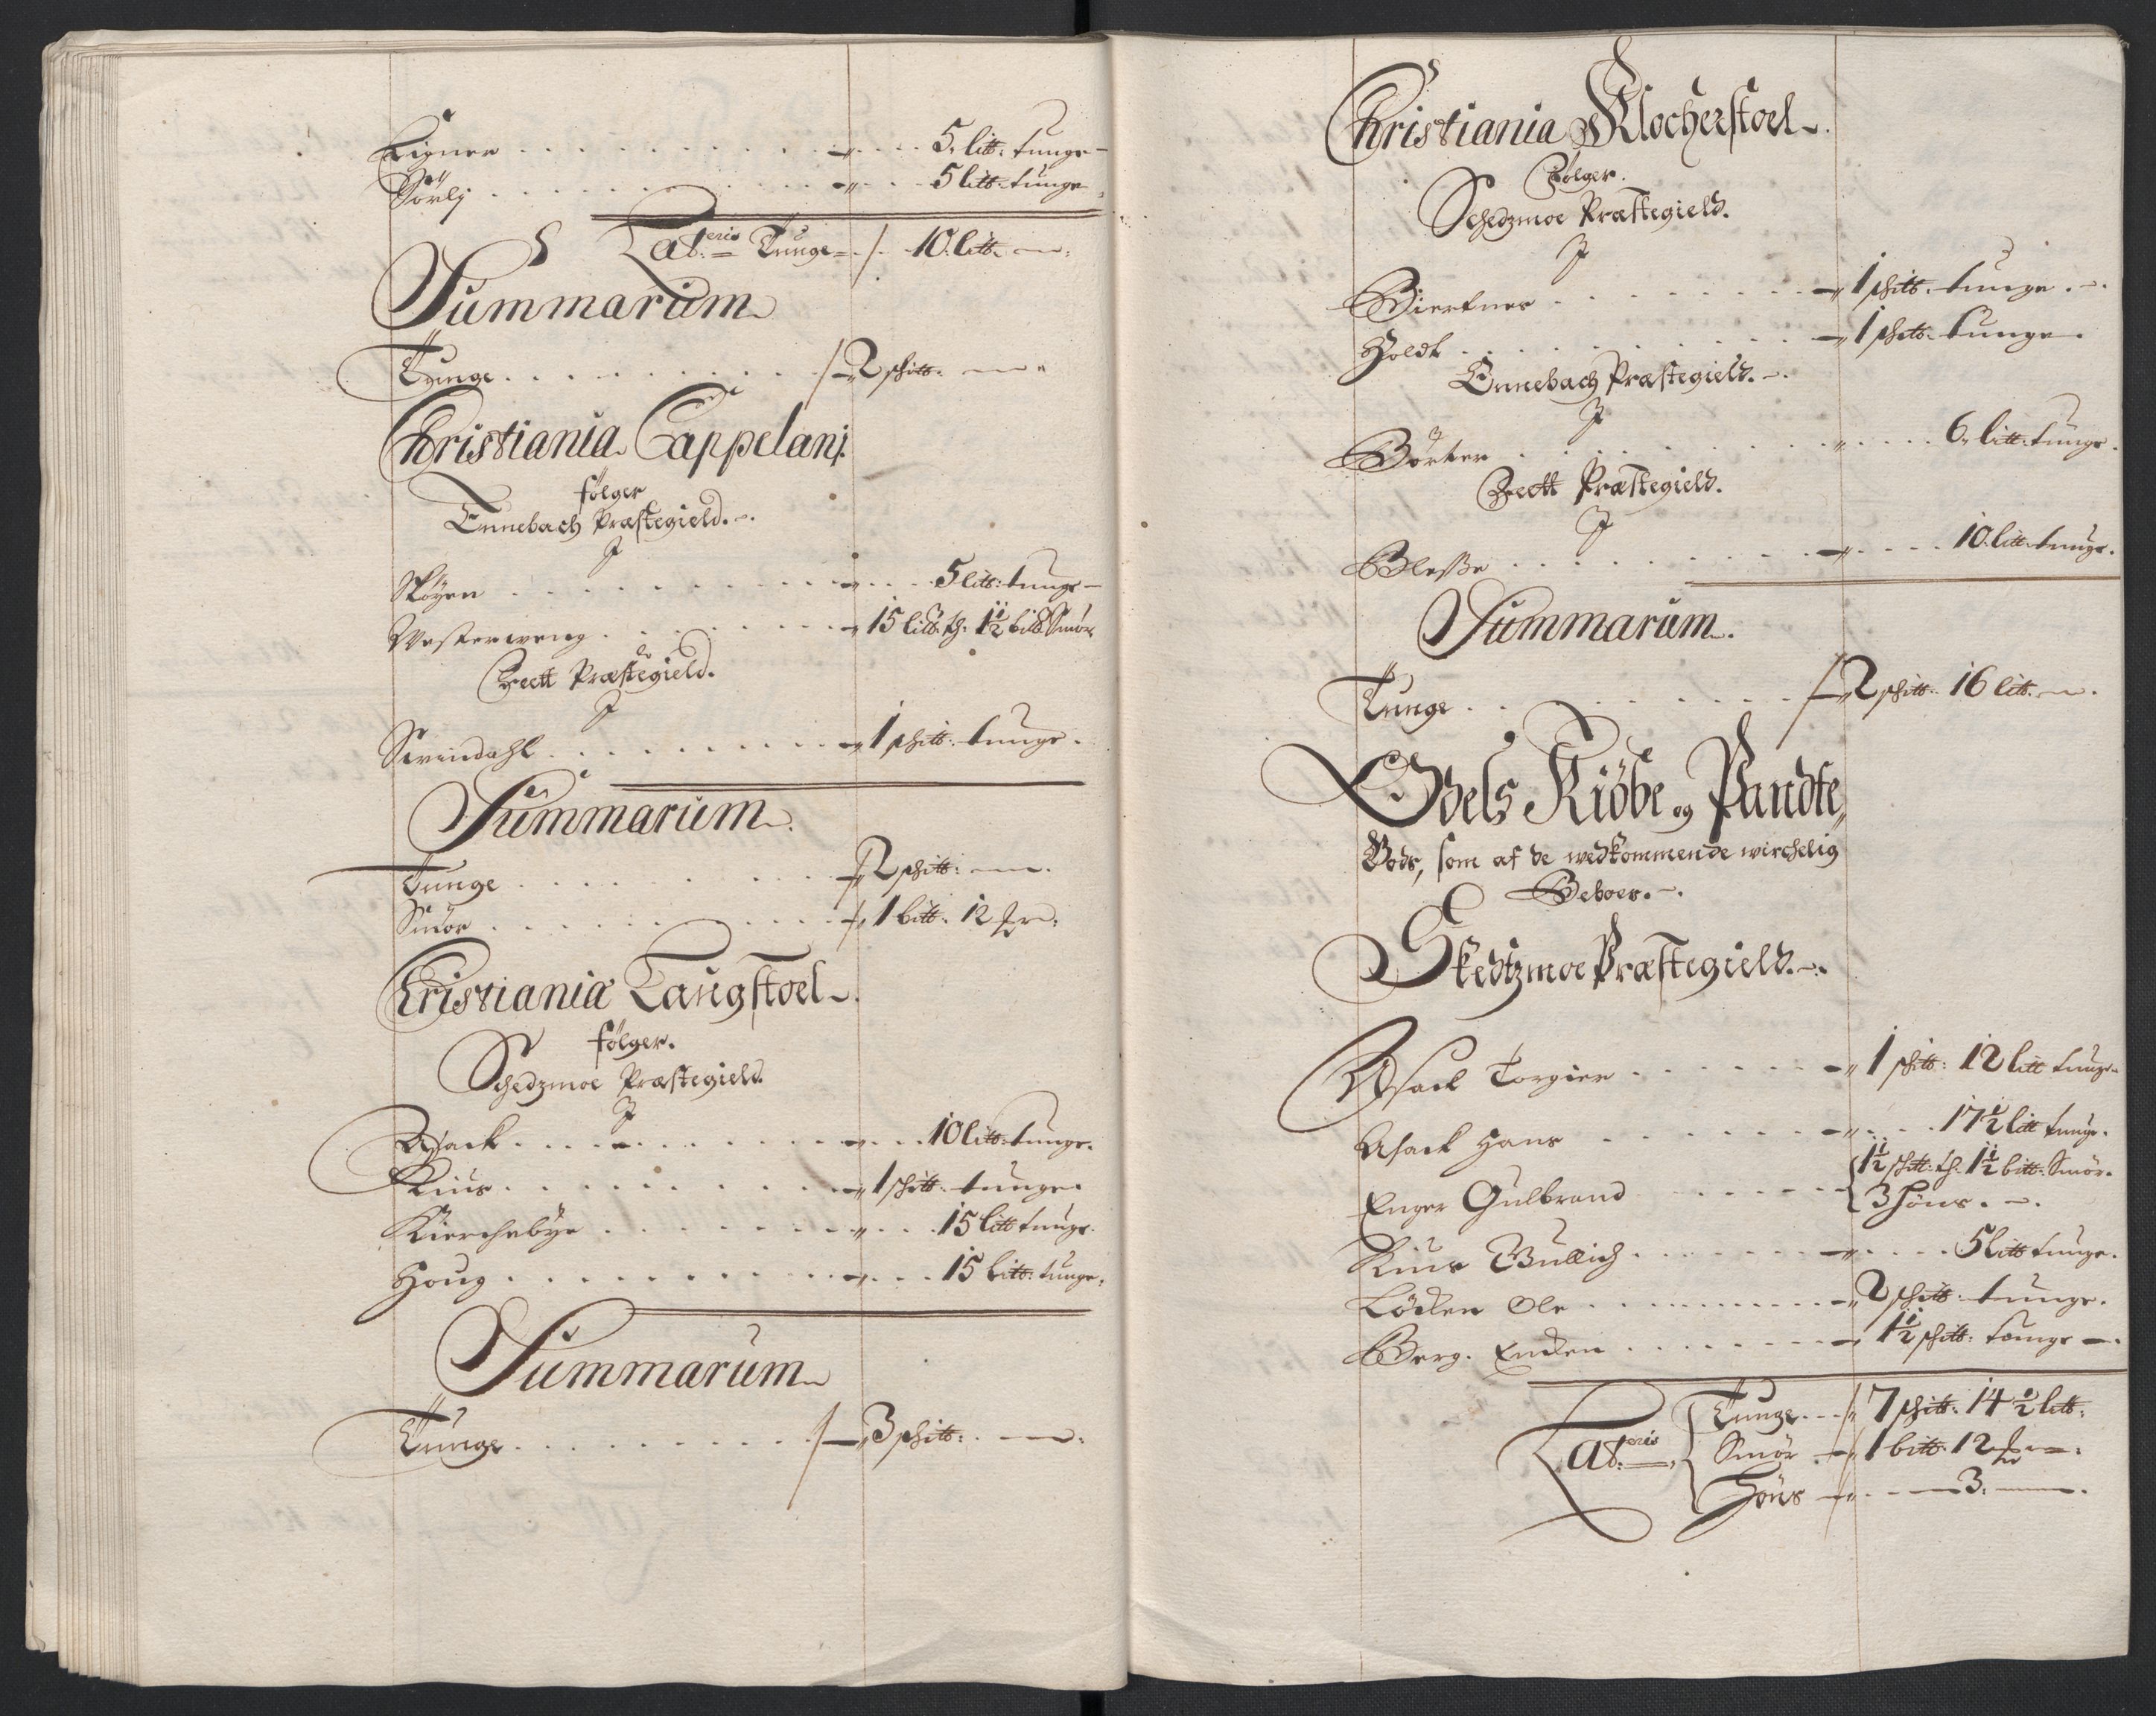 Eigner . . . . . . . . . . 5. litt: tunge
Sörlj . . . . . . . . . . 5 litt: tunge
Lat:eris Tunge 10. litt.
Summarum
Tunge . . . . . . . . . . 2 schitt:
Christiania Cappelani
følger
Ennebach Præstegield.
J
Skøyen . . . . . . . . . . 5 litt: tunge
Westerweng . . . . . . . . 15 litt: th: 1½ bitt: Smör
Feett Præstegield.
J
Svindahl . . . . . . . . . 1 schitt: tunge.
Summarum
Tunge . . . . . . . . . . 2 schitt:
Smör . . . . . . . . . . 1 bitt. 12
Christiania Laugstoel
følger.
Schedzmoe Præstegield.
J
Asack . . . . . . . . . . 10 litt: tunge.
Riius . . . . . . . . . . 1 schitt. tunge.
Kierchebye . . . . . . . . 15 litt tunge.
Houg . . . . . . . . . . 15 litt: tunge.
Summarum
Tunge . . . . . . . . . . 3 schitt:
Christiania Klocherstoel
Følger.
Schedzmoe Præstegield.
J
Biertner . . . . . . . . . 1 schitt. tunge.
Holdt . . . . . . . . . . 1 schitt. tunge.
Ennebach Præstegield.
J
Börter . . . . . . . . . . 6. litt: tunge.
Feett Præstegield.
J
Blesße . . . . . . . . . . 10. litt. tunge.
Summarum.
Tunge . . . . . . . . . . 2 schitt. 16 litt.
Odels Kiöbe og Pandte,,
Gods, som af de wedkommende wirchelig
Beboes.
Skedtzmoe Præstegield.
Asack Torgier . . . . . . 1 schitt: 12 litt tunge
Asack Hans . . . . . . . 17½ litt tunge.
Enger Gulbrand . . . . . . 1½ schitt: th: 1½ bitt: Smör.
3 Höns.
Riius Gullich . . . . . . . 5 litt tunge.
Löcken Ole . . . . . . . . 2 schitt. tunge.
Berg. Encken . . . . . . . 1½ schitt: tunge
Lat:eris Tunge 7 schitt. 14½ litt:
Smör 1 bitt. 12
Höns 3.